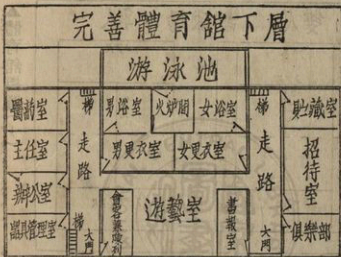 完善體育舘下層
游泳池
醫葯室
梯
男浴室
火炉間
女浴室
梯
貯藏室
主任室
走路
男更衣室
女更衣室
走路
招待室
辦公室
游藝室
書報室
器具管理室
梯
大門
大門
俱樂部